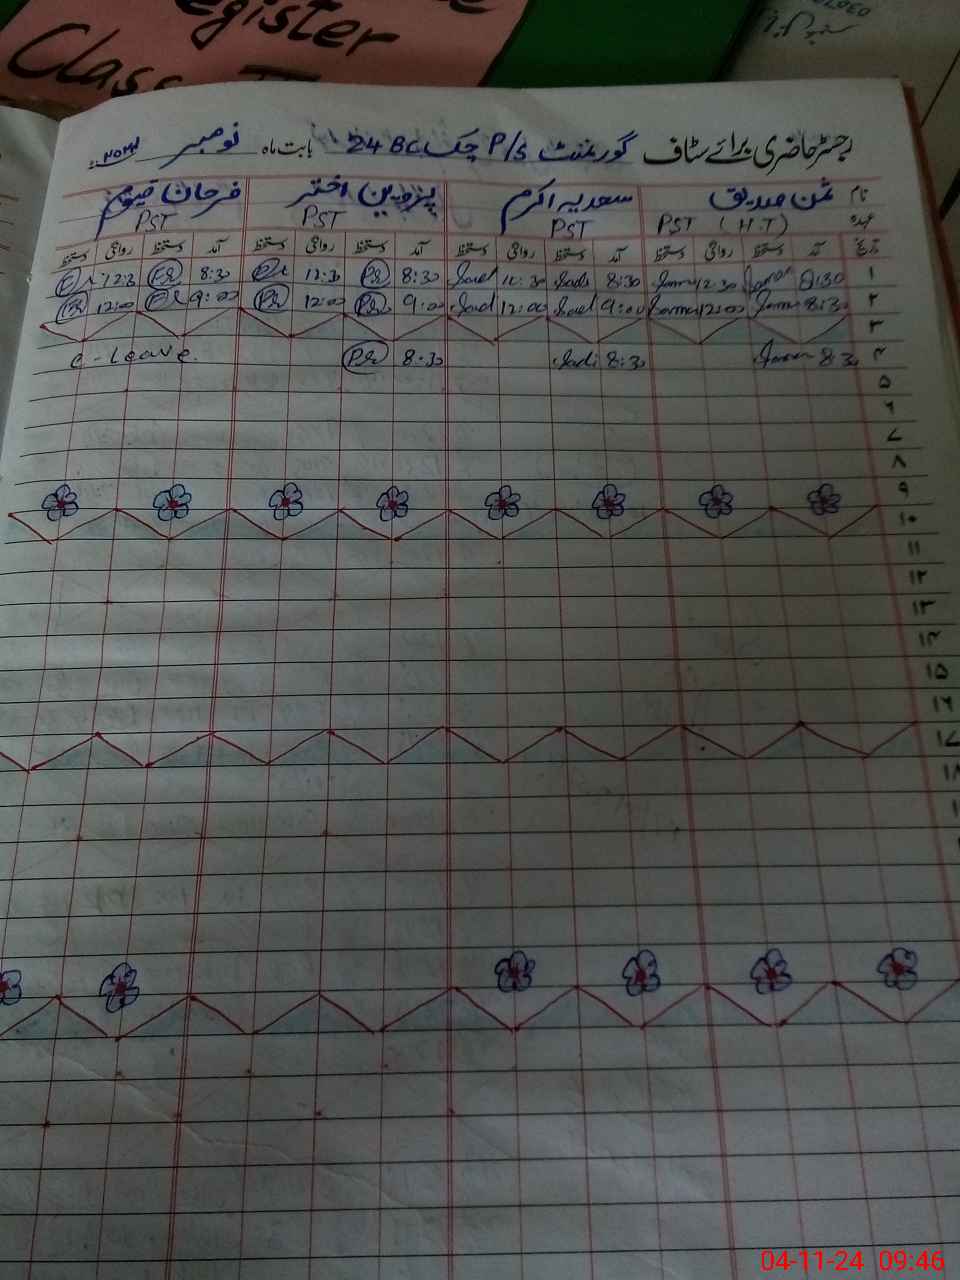 egister
Class
رجسٹر حاضری برائے سٹاف گورنمنٹ P/S چک 24 BC بابت ماہ نومبر ۲۰۲۴ء
نام ثمن صدیق سعدیہ اکرم پروین اختر فرحان قیوم
عہدہ PST (H.T) PST PST PST
تاریخ آمد دستخط روانگی دستخط آمد دستخط روانگی دستخط آمد دستخط روانگی دستخط آمد دستخط روانگی دستخط
۱ 8:30 12:30 8:30 Sadi 12:30 Sad 8:30 12:30 8:30 12:30
۲ 8:30 12:00 9:00 Sad 12:00 Sad 9:00 12:00 9:00 12:00
۳
۴ 8:30 8:30 Sadi 8:30 C-Leave.
۵
۶
۷
۸
۹
۱۰
۱۱
۱۲
۱۳
۱۴
۱۵
۱۶
۱۷
۱۸
04-11-24 09:46